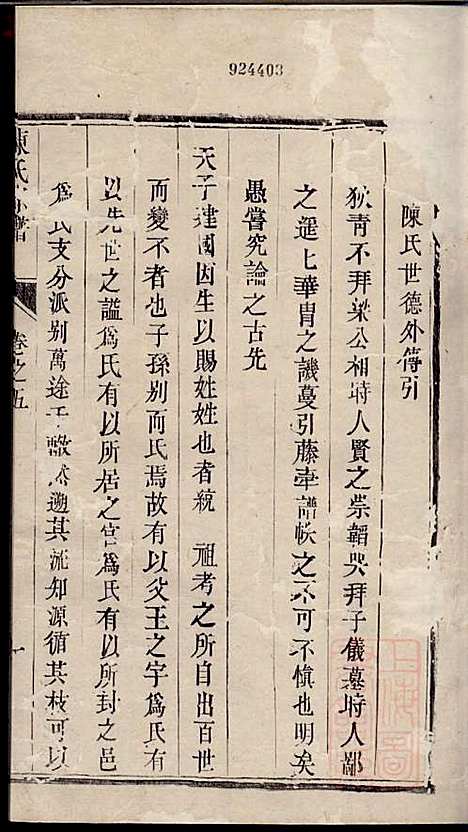 924403
陳氏世德外傳引
狄青不拜梁公相時人賢之崇韜哭拜子儀墓時人鄙
之遥七華胄之譏蔓引藤牽譜帙之不可不愼也明矣
愚嘗究論之古先
天子建國因生以賜姓姓也者統 祖考之所自出百世
而變不者也子孫别而氏焉故有以父王之字爲氏有
以先世之謚爲氏有以所居之官爲氏有以所封之邑
爲氏支分派别萬途千轍然遡其流知源循其枝可以
陳氏 譜
卷之五
一
上海